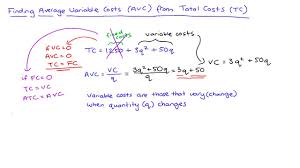 Finding Average Variable Costs (AVC) from Total Costs (TC)
fixed costs
variable costs
if VC=0
AVC=0
TC=FC
TC = 1250 + 3q² + 50q
VC = 3q² + 50q
if FC=0
TC=VC
ATC=AVC
AVC = VC/q = 3q²+50q/q = 3q+50
Variable costs are those that vary(change)
when quantity (q) changes